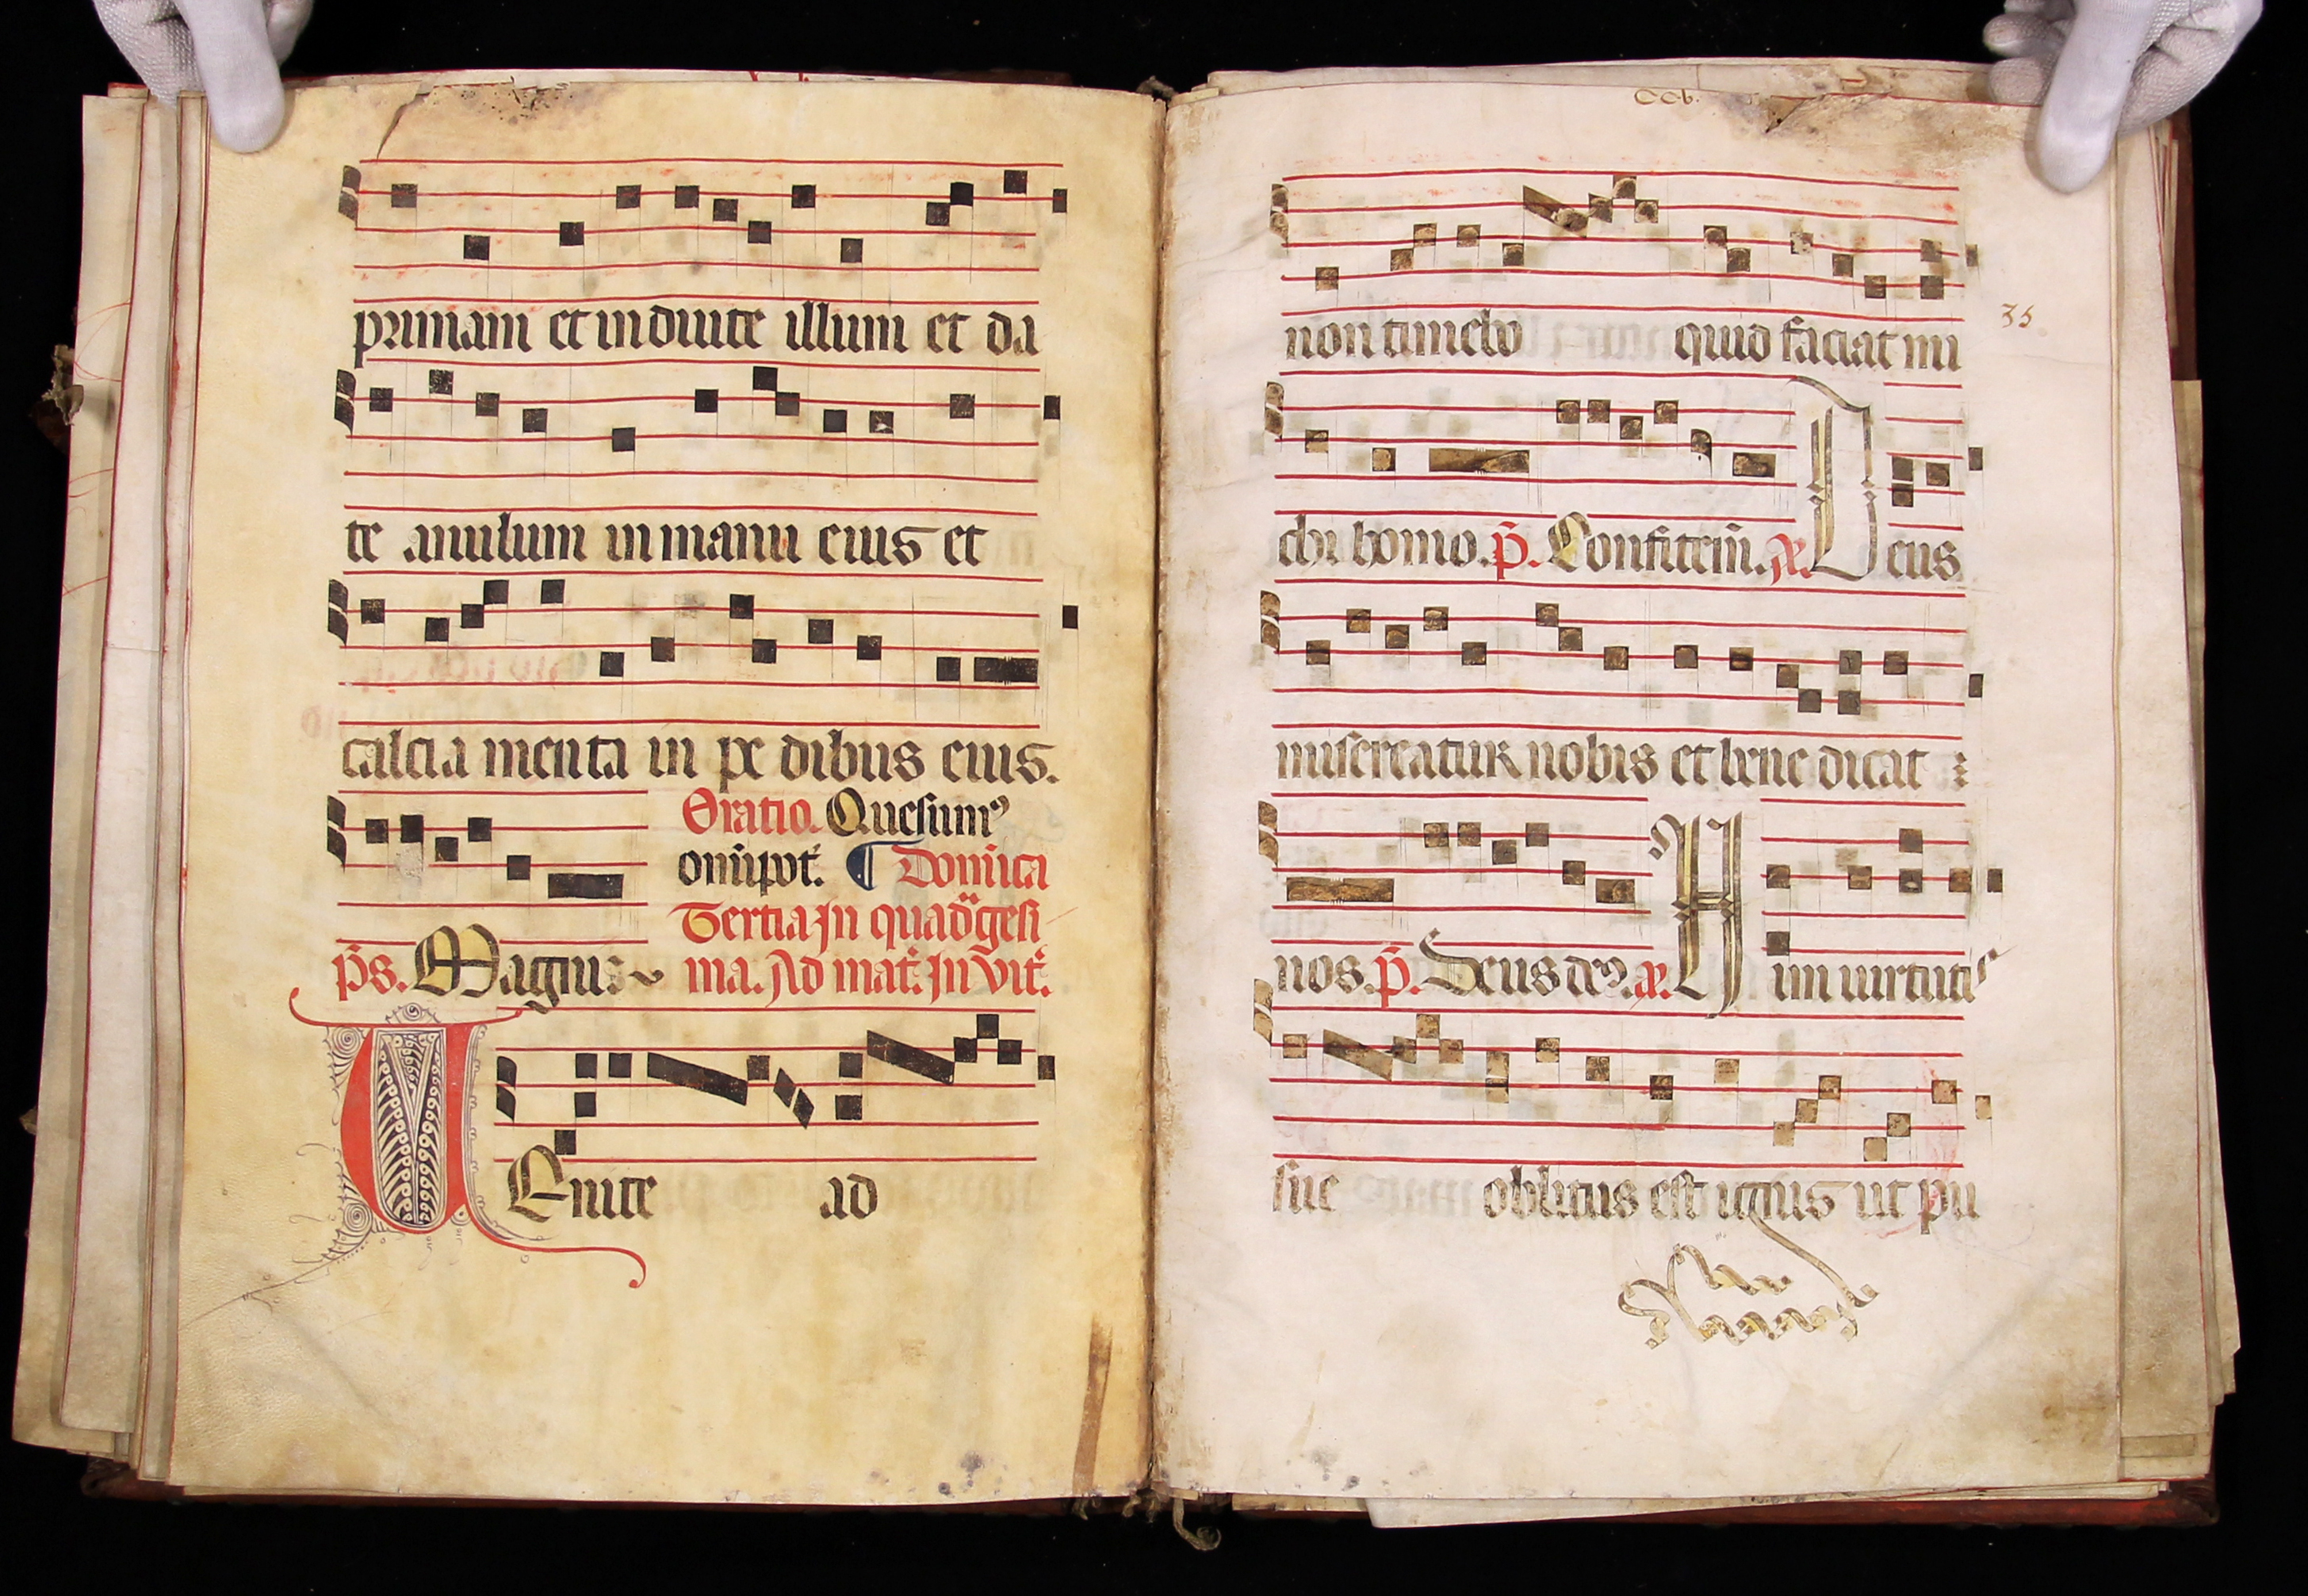 primam et induite illum et da
te anulum in manu eius et
calcia menta in pe dibus eius.
Oratio. Quesumꝰ
om̅ipot̅. ¶ Domi̅ca
Tertia In quadrᵃgesi
p̅s. Magnus ma. Ad mat̅. Invit̅.
VEnite ad
CCb.
non timebo quid faciat mi
35
chi homo. p̅. Confitem̅. Deus
misereatur nobis et bene dicat
nos. p̅. Deus deꝰ. im uirtutis
sue oblitus est ignis ut pu